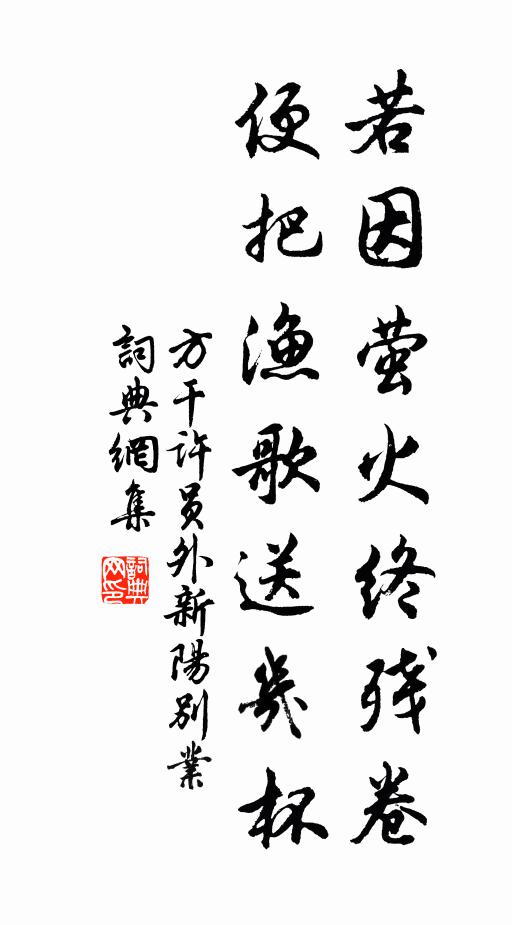 若因萤火终残卷
便把渔歌送幾杯
方干许员外新陽别業
詞典網集
詞典网印